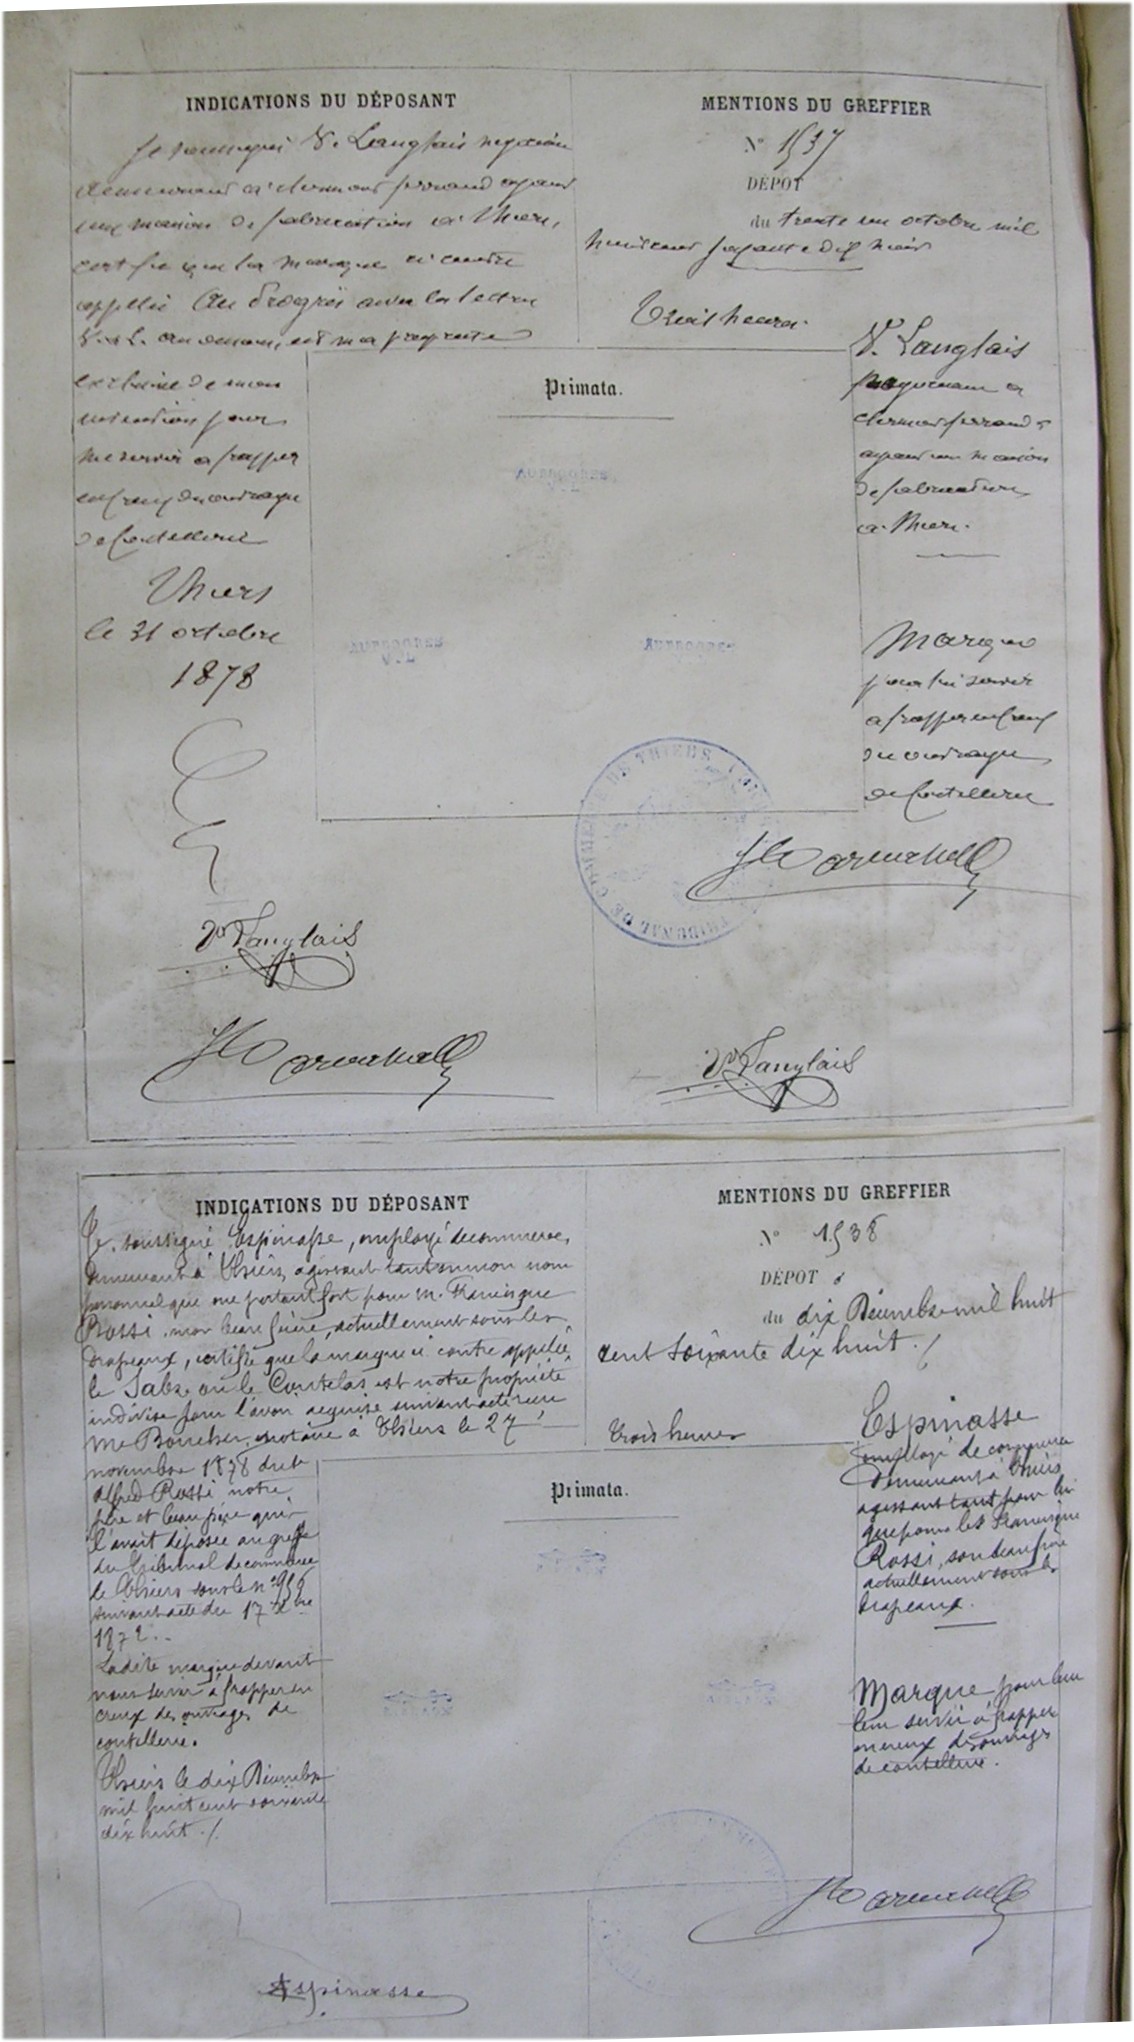 INDICATIONS DU DÉPOSANT
Je soussigné V. Langlais
demeurant a clermont ferrand ayant
une maison de fabrication a Thiers,
certifie que la marque ci contre
appellée Au Progrès avec les lettres
V. L. au dessous, est ma propriété
exclusive de mon
invention pour
me servir a frapper
en creux des ouvrages
de Coutellerie
Thiers
le 31 octobre
1878
Vr Langlais
MENTIONS DU GREFFIER
N° 1537
DÉPOT
du trente un octobre mil
huit cent soixante dix huit
Trois heures.
V. Langlais
clermont ferrand
ayant une maison
de fabrication
a Thiers.
Marque
pour lui servir
a frapper en creux
des ouvrages
de Coutellerie
Primata.
AUPROGRES
V.L
AUPROGRES
V.L
AUPROGRES
TRIBUNAL DE COMMERCE DE THIERS
Vr Langlais
INDICATIONS DU DÉPOSANT
Je soussigné Espinasse, employé de commerce,
demeurant à Thiers, agissant tant en mon nom
personnel que me portant fort pour M. Francisque
Rossi mon beau frère, actuellement sous les
drapeaux, certifie que la marque ci contre appellée
le Sabre ou le Coutelas est notre propriété
indivise pour l'avoir acquise suivant acte reçu
Me notaire à Thiers le 27
novembre 1878 dudit
Alfred Rossi notre
père et beau père qui
l'avait déposée au greffe
du Tribunal de commerce
de Thiers sous le n°
suivant acte du 17
1872.
La dite marque devant
nous servir à frapper en
creux des ouvrages de
coutellerie.
Thiers le dix Décembre
mil huit cent soixante
dix huit ./.
Espinasse
MENTIONS DU GREFFIER
N° 1538
DÉPOT
du dix Décembre mil huit
cent soixante dix huit ./
Trois heures
Espinasse
employé de commerce
demeurant à Thiers
agissant tant pour lui
que pour le Sr Francisque
Rossi, son beau frère
actuellement sous les
drapeaux.
Marque pour leur
leur servir à frapper
en creux des ouvrages
de coutellerie.
Primata.